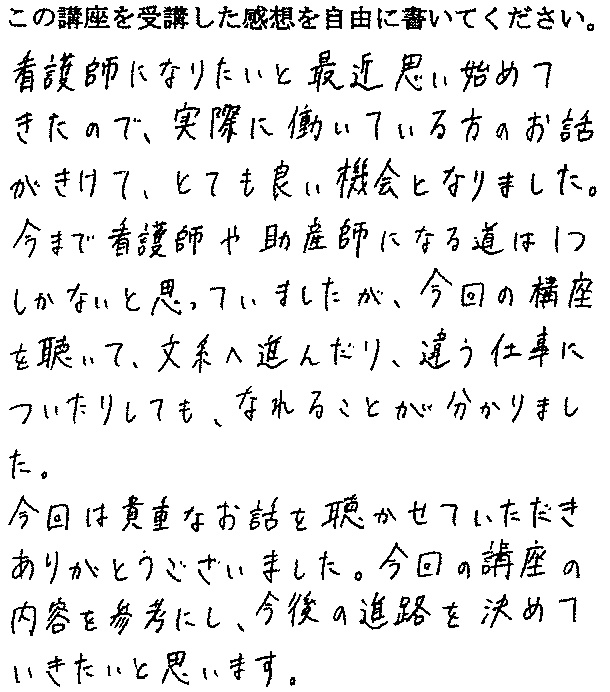 この講座を受講した感想を自由に書いてください。
看護師になりたいと最近思い始めて
きたので、実際に働いている方のお話
がきけて、とても良い機会となりました。
今まで看護師や助産師になる道は1つ
しかないと思っていましたが、今回の講座
を聴いて、文系へ進んだり、違う仕事に
ついたりしても、なれることが分かりまし
た。
今回は貴重なお話を聴かせていただき
ありがとうございました。今回の講座の
内容を参考にし、今後の進路を決めて
いきたいと思います。